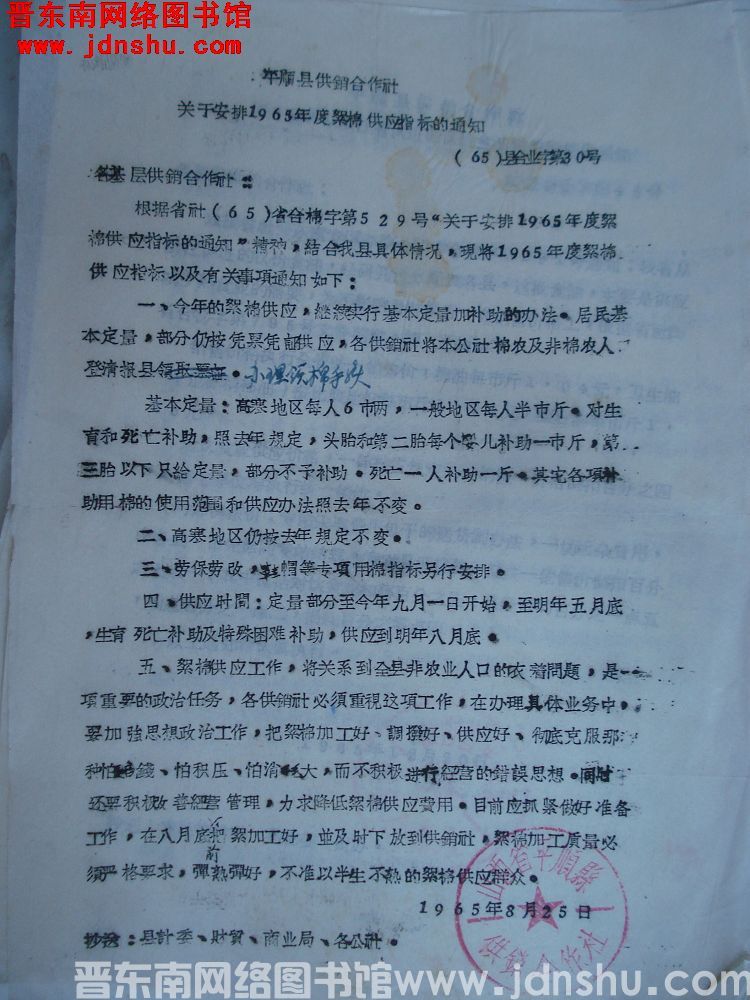 晋东南网络图书馆
www.jdnshu.com
平顺县供銷合作社
关于安排1965年度絮棉供应指标的通知
(65)县合业字第30号
各基层供銷合作社:
根据省社(65)省合棉字第529号“关于安排1965年度絮
棉供应指标的通知”精神,结合我县具体情况,现将1965年度絮棉
供应指标以及有关事項通知如下:
一、今年的絮棉供应,継続实行基本定量加补助的办法。居民基
本定量,部分仍按凭票凭証供应,各供銷社将本公社棉农及非棉农人
登清报县領取票証。办理领棉手续
基本定量:高寒地区每人6市两,一般地区每人半市斤。对生
育和死亡补助,照去年規定,头胎和第二胎每个婴儿补助一市斤,第
三胎以下只给定量,部分不予补助。死亡一人补助一斤。其它各項补
助用棉的使用范围和供应办法照去年不变。
二、高寒地区仍按去年規定不变。
三、劳保劳改,鞋帽等专項用棉指标另行安排。
四、供应时間:定量部分至今年九月一日开始,至明年五月底
,生育死亡补助及特殊困难补助,供应到明年八月底。
五、絮棉供应工作,将关系到全县非农业人口的衣着問題,是一
項重要的政治任务,各供銷社必須重視这項工作,在办理具体业务中,
要加強思想政治工作,把絮棉加工好、調撥好、供应好、彻底克服那
种怕賠錢、怕积压、怕淌大,而不积极进行經营的錯誤思想。同时
还要积极改善經营管理,力求降低絮棉供应費用。目前应抓紧做好准备
工作,在八月底前把絮加工好,並及时下放到供銷社,絮棉加工质量必
須严格要求,彈熟彈好,不准以半生不熟的絮棉供应群众。
1965年8月25日
山西省平順縣
供銷合作社
抄送:县計委、財貿、商业局、各公社。
晋东南网络图书馆 www.jdnshu.com